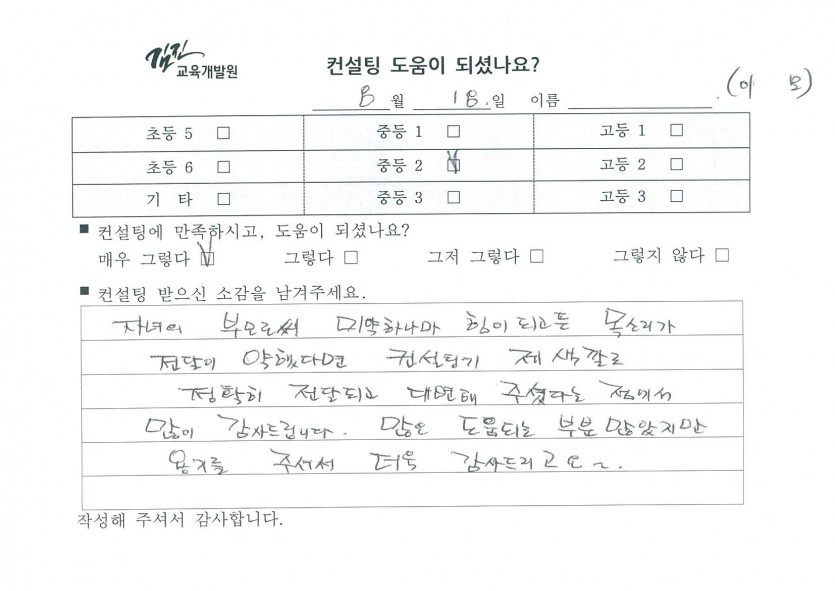 김진
교육개발원
컨설팅 도움이 되셨나요?
8월 18.일 이름 . (이 모)
초등 5 □ 중등 1 □ 고등 1 □
초등 6 □ 중등 2 ☑ 고등 2 □
기 타 □ 중등 3 □ 고등 3 □
■ 컨설팅에 만족하시고, 도움이 되셨나요?
매우 그렇다 ☑ 그렇다 □ 그저 그렇다 □ 그렇지 않다 □
■ 컨설팅 받으신 소감을 남겨주세요.
자녀의 부모로써 미약하나마 힘이 되고픈 목소리가
전달이 약했다면 컨설팅기 제 색깔로
정확히 전달되고 대변해 주셨다는 점에서
많이 감사드립니다. 많은 도움되는 부분 많았지만
용기를 주셔서 더욱 감사드리고요~.
작성해 주셔서 감사합니다.